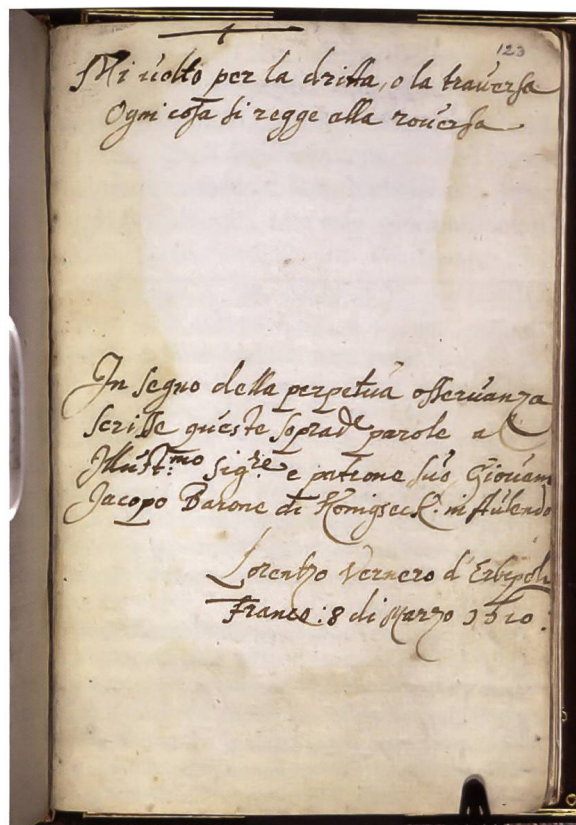 123
Mi uolto per la dritta, o la trauersa
Ogni cosa si regge alla rouersa
In segno della perpetua osseruanza
scrisse queste soprad.e parole a l'
Illust.mo Sig.re e patrone suo, Giouan
Jacopo Barone di Königseck. in Aulendo
Lorentzo Vernero d'Erbipoli
Franco: 8 di Marzo 1610: